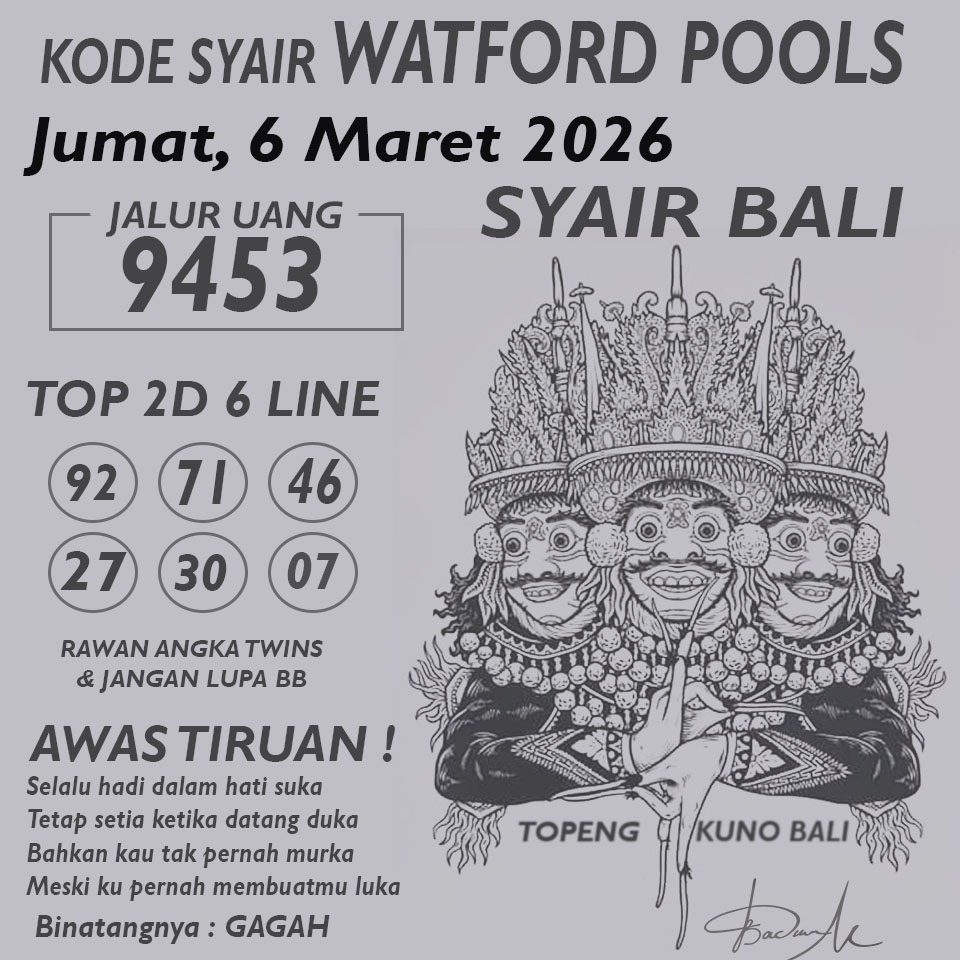 KODE SYAIR WATFORD POOLS
Jumat, 6 Maret 2026
SYAIR BALI
JALUR UANG
9453
TOP 2D 6 LINE
92 71 46
27 30 07
RAWAN ANGKA TWINS
& JANGAN LUPA BB
AWAS TIRUAN !
Selalu hadi dalam hati suka
Tetap setia ketika datang duka
Bahkan kau tak pernah murka
Meski ku pernah membuatmu luka
Binatangnya : GAGAH
TOPENG KUNO BALI